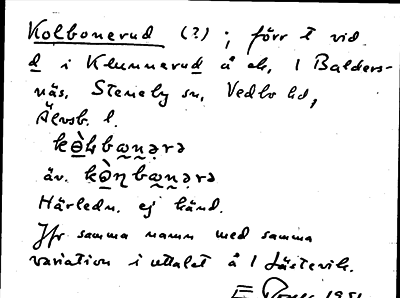 Kolbonerud (?); förr t vid
d i Klunnerud å ek. 1 Balders-
näs, Steneby sn, Vedbo hd,
Älvsb. l.
Härledn. ej känd.
Jfr samma namn med samma
variation i uttalet å 1 Lästevik.
1951